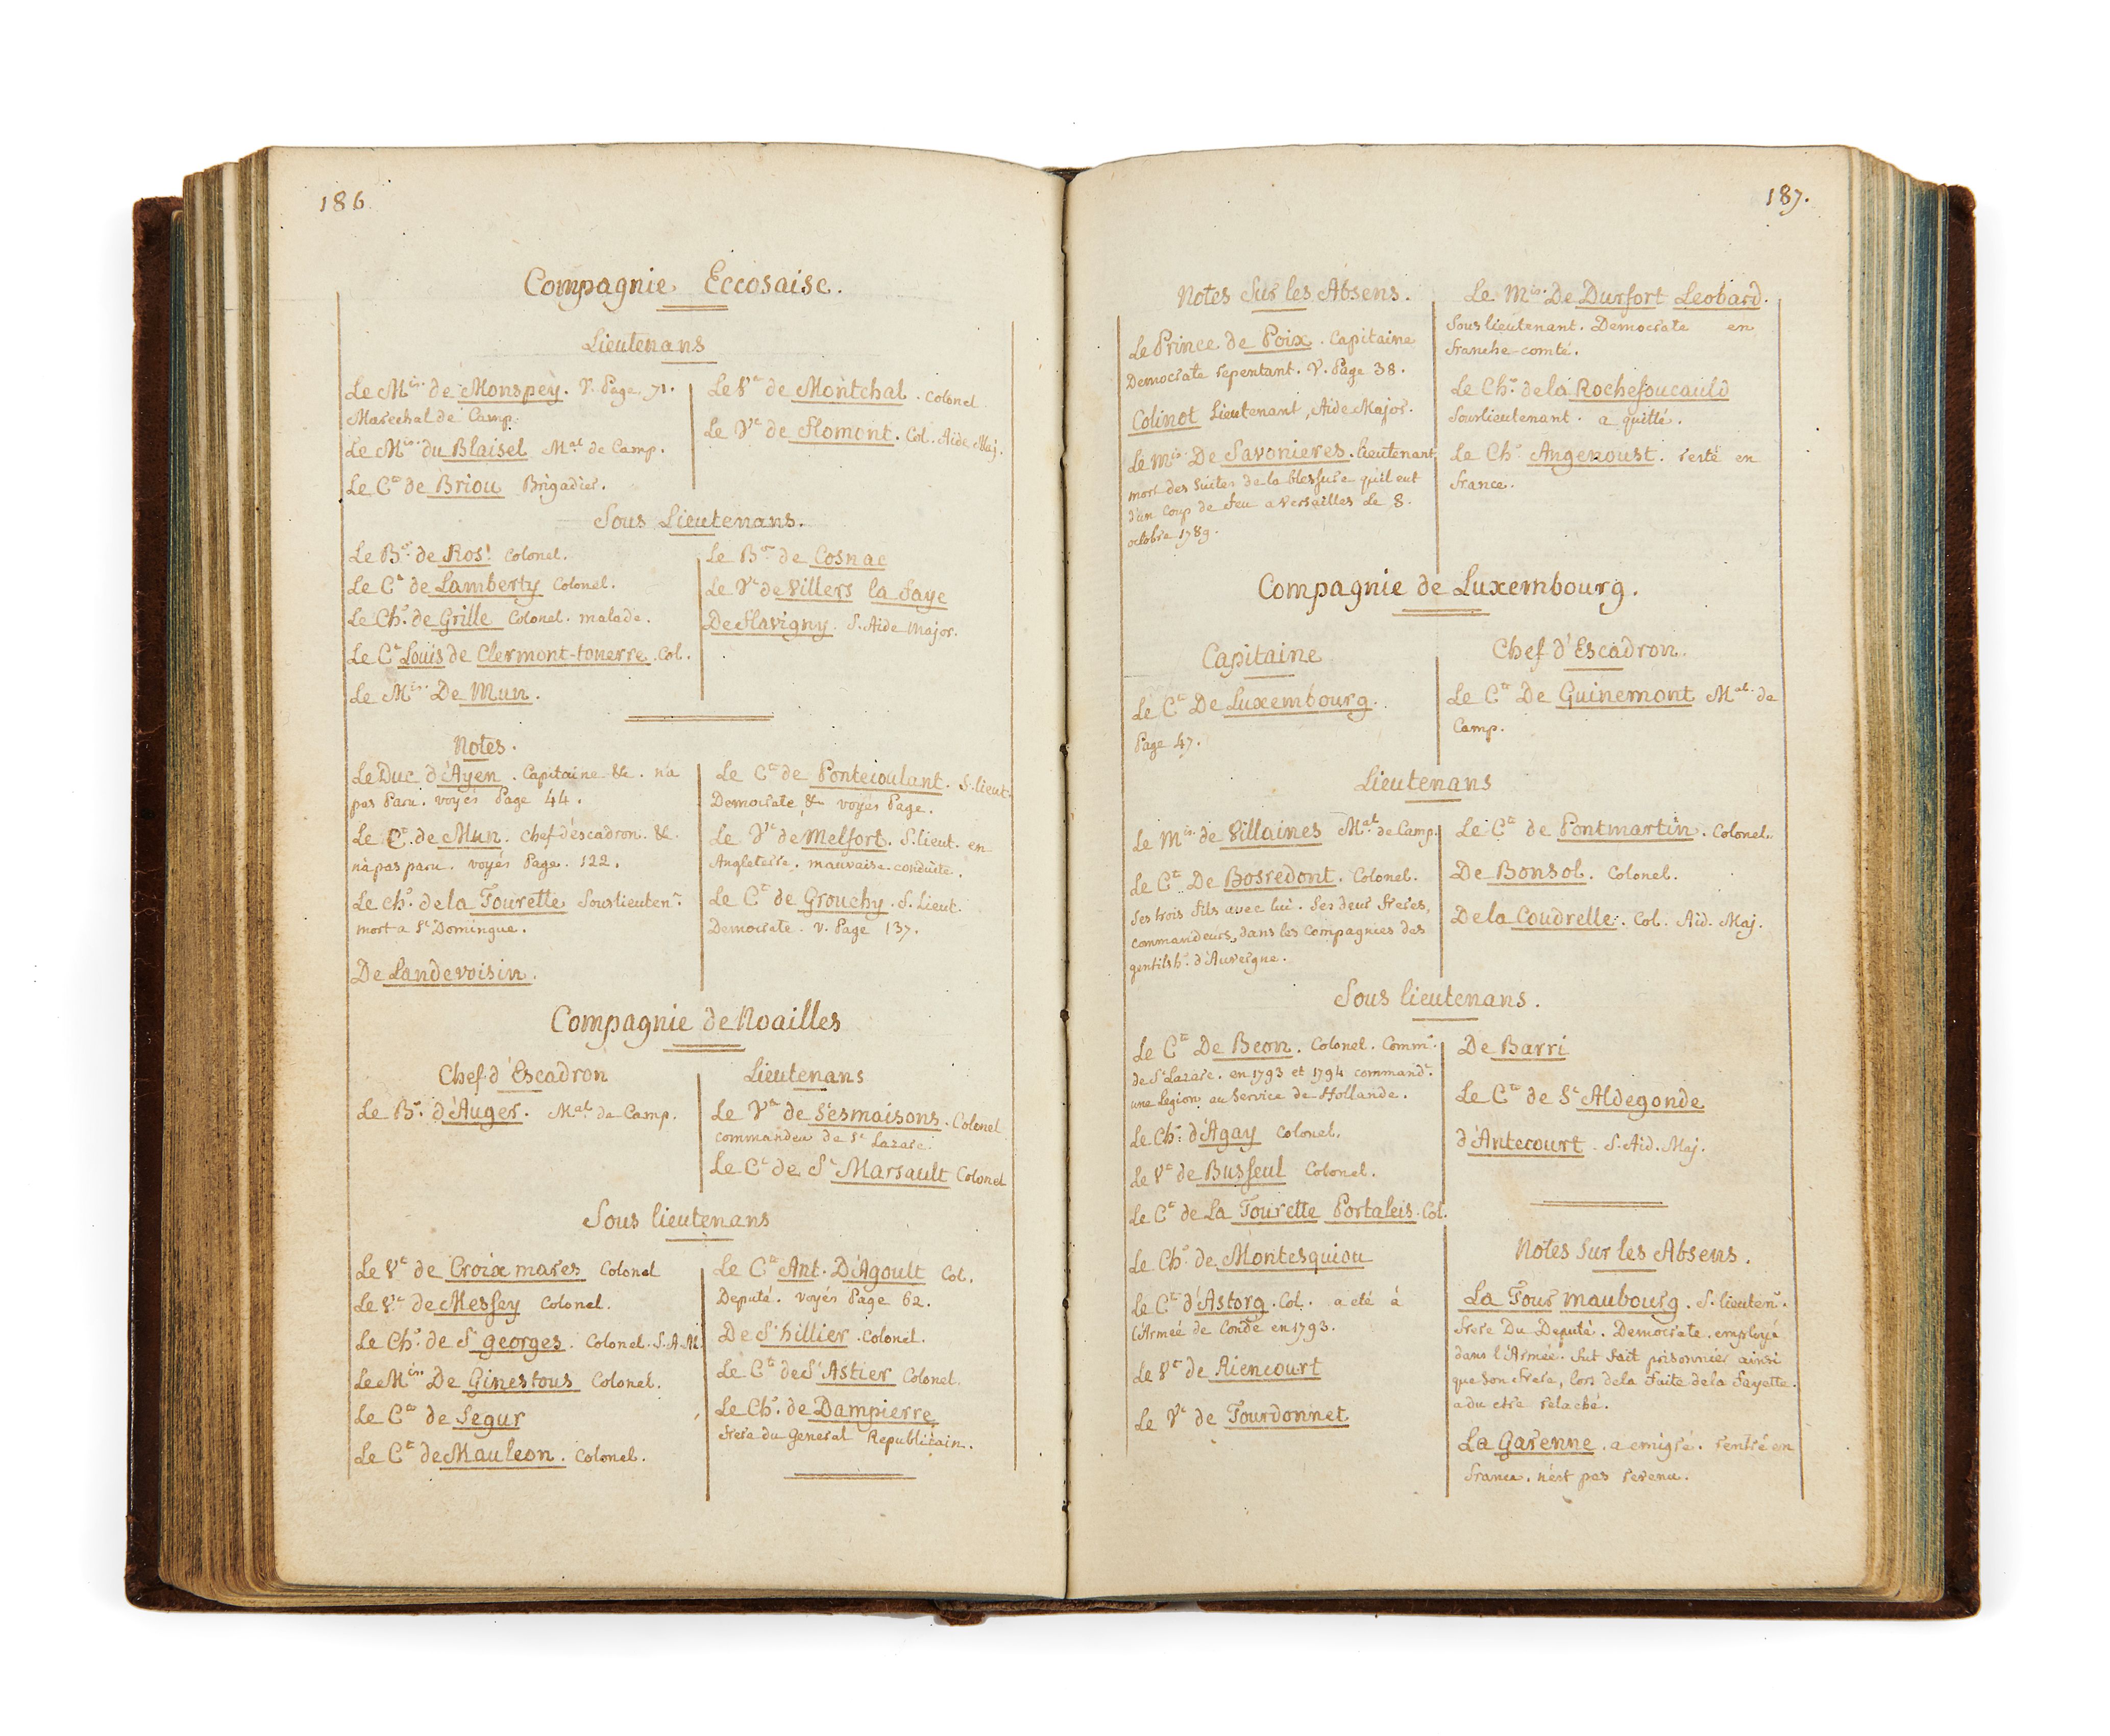 186
Compagnie Eccosaise.
Lieutenans
Le Mis. de Monspey. V. Page, 71.
Marechal de Camp.
Le Mis. du Blaisel Mal. de Camp.
Le Cte de Briou Brigadier.
Le Vte de Montchal. Colonel
Le Vte de Flomont. Col. Aide Maj.
Sous Lieutenans.
Le Bon. de Rosl Colonel.
Le Cte de Lamberty Colonel.
Le Chr. de Grille Colonel. malade.
Le Cte Louis de Clermont-tonerre. Col.
Le Mis. De Mun.
Le Bon de Cosnac
Le Vte de Villers la Faye
De Flavigny. S. Aide Major.
Notes.
Le Duc d'Ayen. Capitaine &c. n'a
pas Paru. voyés Page 44.
Le Cte. de Mun. Chef d'éscadron. &c.
n'a pas paru. voyés Page. 122.
Le chr. de la Tourette Souslieutent.
mort a St Domingue.
De Landevoisin.
Le Cte de Pontecoulant. S. lieut.
Democrate & voyés Page.
Le Vte de Melfort. S. lieut. en
Angleterre. mauvaise conduite.
Le Cte de Grouchy. S. Lieut.
Democrate. v. Page 137.
Compagnie de Noailles
Chef d'Escadron
Le Bon. d'Auger. Mal. de Camp.
Lieutenans
Le Vte de Sesmaisons. Colonel
commandeu de St Lazare.
Le Cte de St Marsault Colonel
Sous lieutenans
Le Vte de Croixmares Colonel
Le Vte de Messey Colonel.
Le Chr. de St georges. Colonel. S. A. M.
Le Mis De Ginestous Colonel.
Le Cte de Segur
Le Cte de Mauleon. Colonel.
Le Cte Ant. D'Agoult Col.
Deputé. voyés Page 62.
De St hillier. Colonel.
Le Cte de St Astier Colonel.
Le Chr. de Dampierre
frere du General Republicain.
187.
Notes Sur les Absens.
Le Prince de Poix. Capitaine
Democrate repentant. V. Page 38.
Colinot Lieutenant, Aide Major.
Le Mis. De Savonieres. lieutenant
mort des Suites de la blessure qu'il eut
d'un Coup de Feu a Versailles Le 8.
octobre 1789.
Le Mis. De Durfort Leobard.
Sous lieutenant. Democrate en
franche-comté.
Le Chr. de la Rochefoucauld
Souslieutenant. a quitté.
Le Chr. Angenoust. resté en
france.
Compagnie de Luxembourg.
Capitaine
Le Cte De Luxembourg.
Page 47.
Chef d'Escadron.
Le Cte De Guinemont Mal. de
Camp.
Lieutenans
Le Mis. de Villaines Mal. de Camp.
Le Cte. De Bosredont. Colonel.
Ses trois fils avec lui. Ses deux freres,
commandeurs, dans les Compagnies des
gentilsh. d'Auvergne.
Le Cte de Pontmartin. Colonel.
De Bonsol. Colonel.
De la Coudrelle. Col. Aid. Maj.
Sous lieutenans.
Le Cte De Beon. Colonel. Commr.
de St Lazare. en 1793 et 1794 commandt.
une Legion au Service de Hollande.
Le Chr. d'Agay Colonel.
Le Vte de Busseul Colonel.
Le Cte de La Tourette Portaleis. Col.
Le Chr. de Montesquiou
Le Cte d'Astorg. Col. a eté à
l'Armeé de Condé en 1793.
Le Vte de Riencourt
Le Vte de Tourdonnet
De Barri
Le Cte de Ste Aldegonde
d'Antecourt. S. Aid. Maj.
Notes Sur les Absens.
La Tour maubourg. S. lieutent.
frere Du Deputé. Democrate. employé
dans l'Armeé. fut fait prisonnier ainsi
que son frere, lors de la Fuite de la Fayette.
a du etre relaché.
La Garenne. a emigré. rentré en
France. n'est pas revenu.